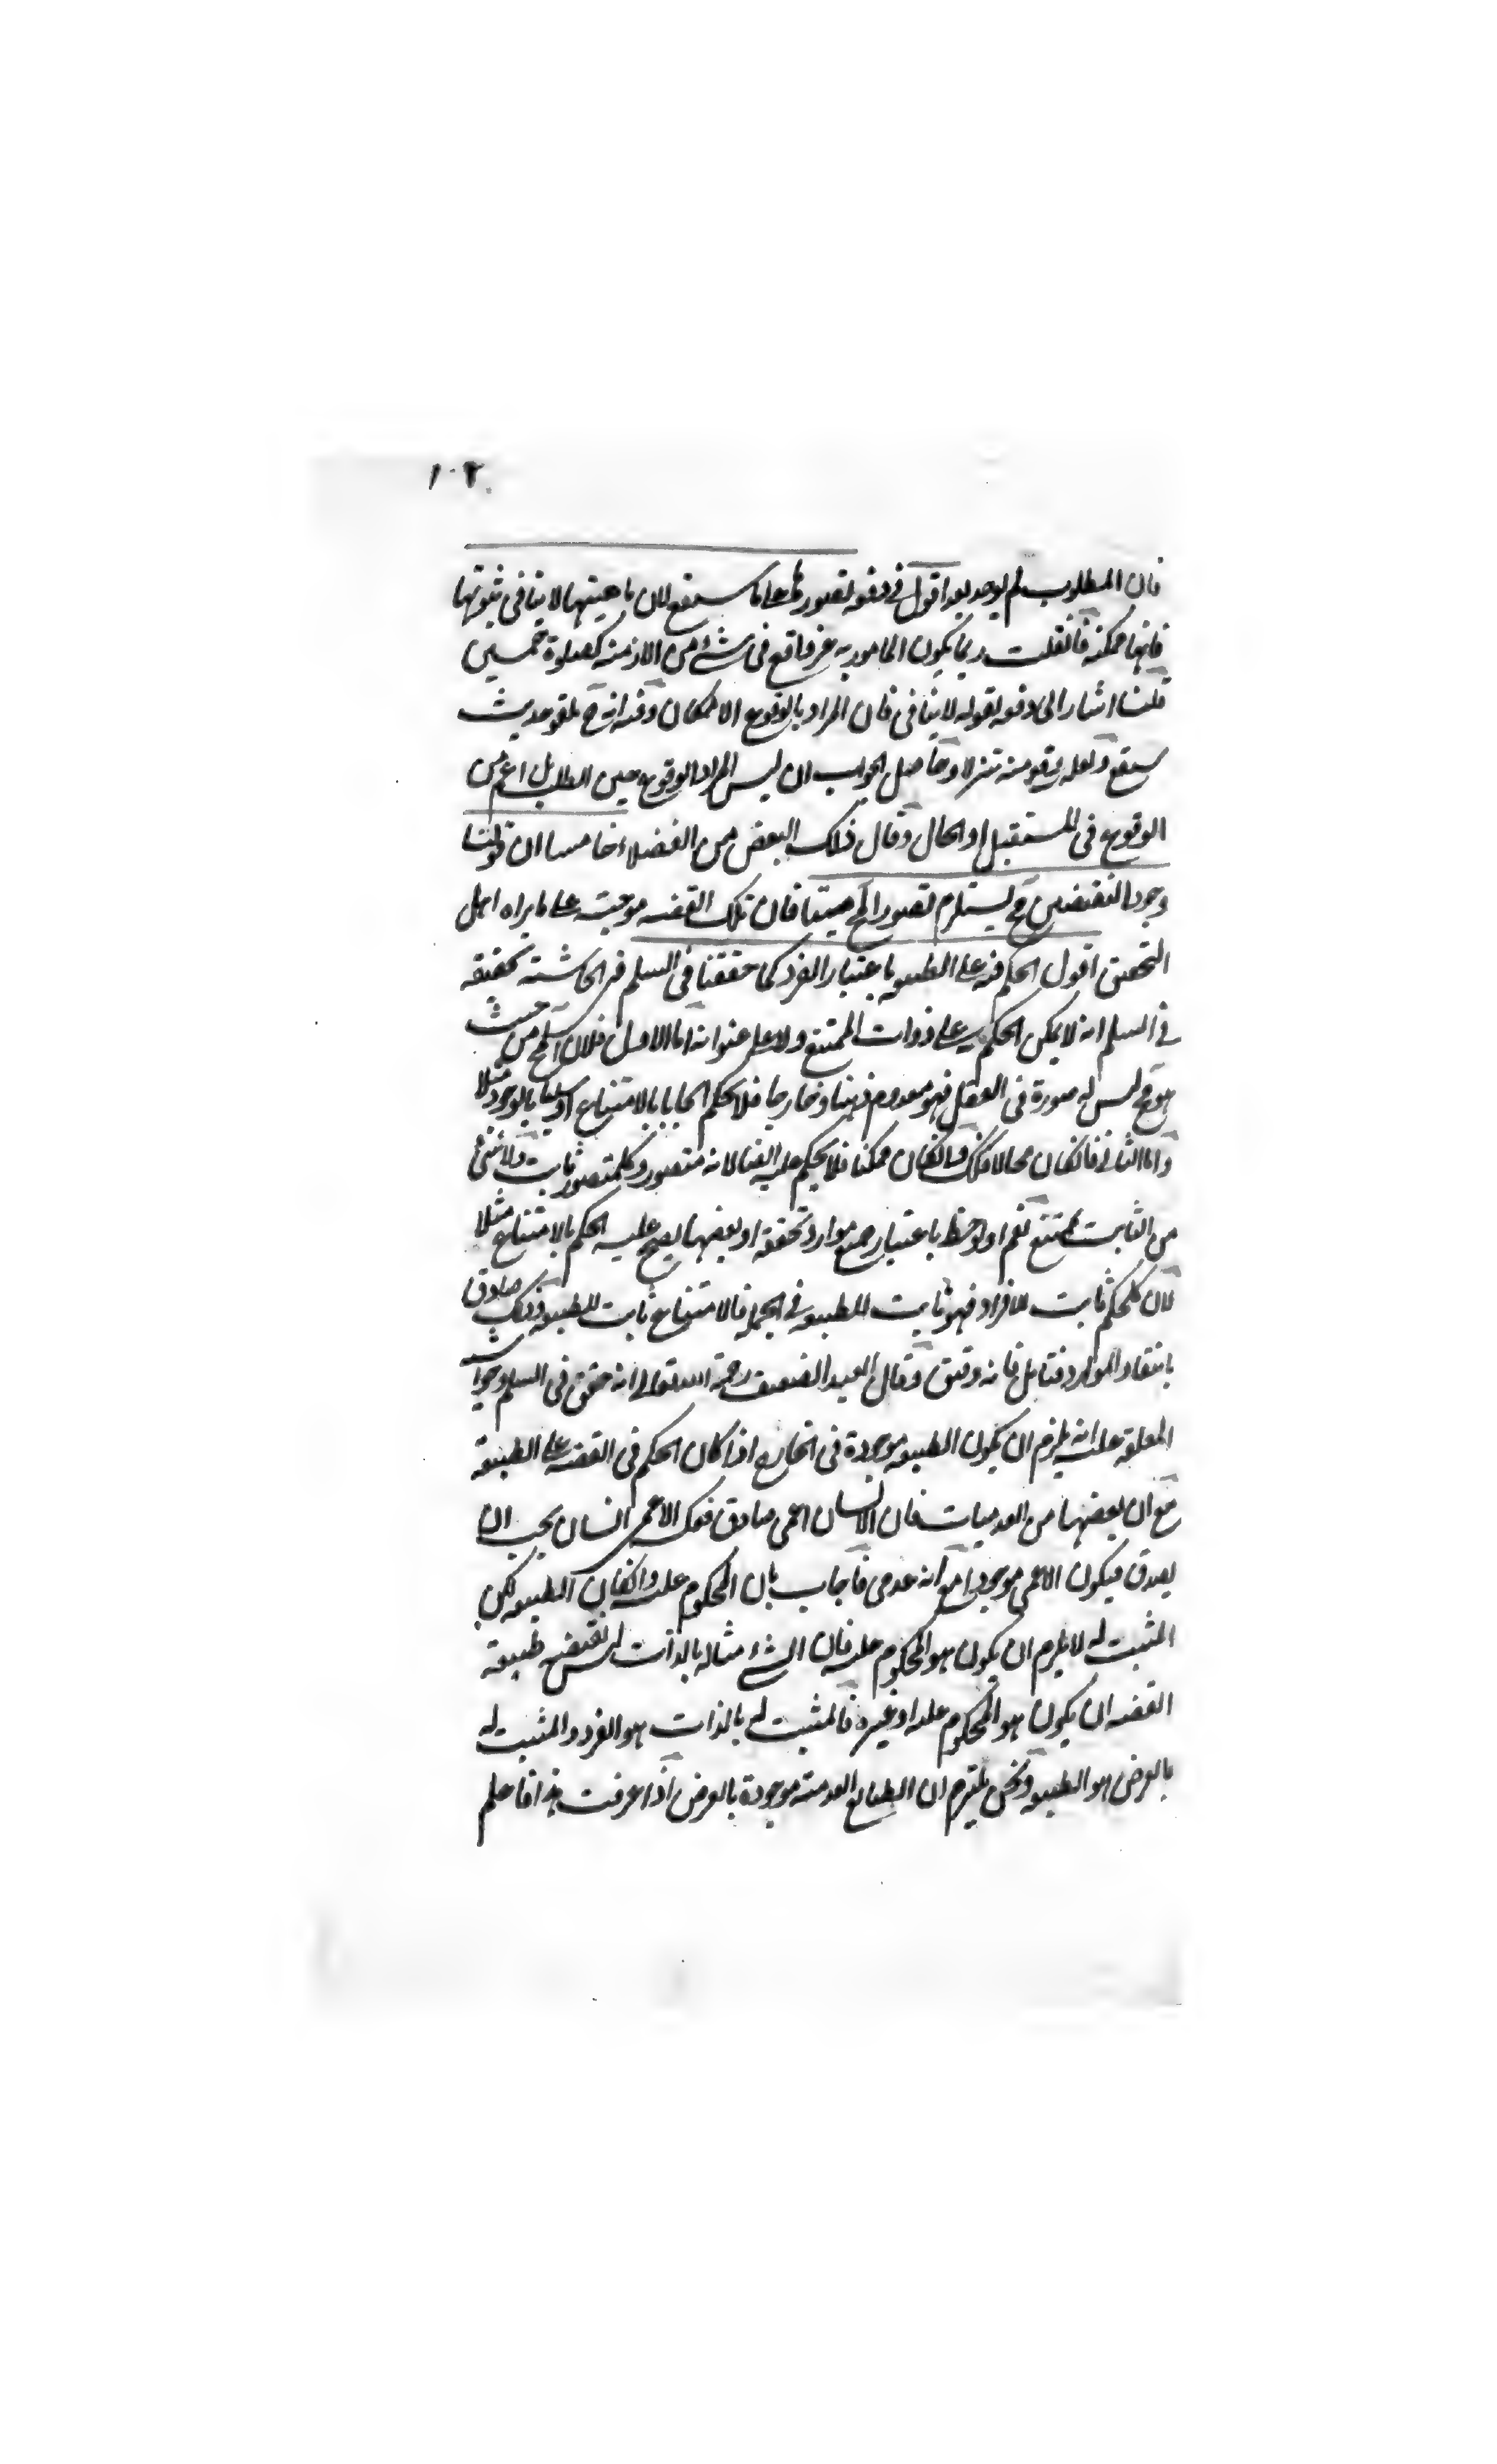 ١٠٢
فان المطلوب لم يوجد بعد اقول في دفعه تصورها على ما سيقع لان ماهيتها لا ينافى ثبوتها
فانها ممكنة فانقلت ربما يكون المامور به غير واقع فى شئ من الازمنة كصلوة خمسين
قلنا اشار الى دفعه بقوله لا ينافى فان المراد بالوقوع الامكان وفيه انه ح يلغو حديث
سيقع ولعله وقع منه تنزلا وحاصل الجواب ان ليس المراد الوقوع حين الطلب بل اعم من
الوقوع فى المستقبل او الحال وقال ذلك البعض من الفضلاء خامسا ان قولنا
وجود النقيضين مح يستلزم تصور المح مثبتا فان تلك القضية موجبة على ما يراه اهل
التحقيق اقول الحكم فيه على الطبيعة باعتبار الفرد كما حققنا فى السلم فى الحاشية تحقيقه
في السلم انه لا يمكن الحكم على ذوات الممتنع ولا على عنوانه اما الاول فلان المح من حيث
هو مح ليس له صورة فى العقل فهو معدوم ذهنا وخارجا فلا يحكم ايجابا بالامتناع او سلبا بالوجود مثلا
واما الثاني فانكان محالا فكذلك وانكان ممكنا فلا يحكم عليه ايضا لانه متصور وكل متصور ثابت ولا شئ
من الثابت بممتنع نعم اذا لوحظ باعتبار جميع موارد تحققه او بعضها يصح عليه الحكم بالامتناع مثلا
لان كل حكم ثابت للافراد فهو ثابت للطبيعة في الجملة فالامتناع ثابت للطبيعة وذلك صادق
بانتفاء الموارد فتامل فانه دقيق وقال العبد الضعيف رحمة الله تعالى انه حقق فى السلم وحواشيه
المعلقة عليه انه يلزم ان يكون الطبيعة موجودة فى الخارج اذا كان الحكم فى القضية على الطبيعة
مع ان بعضها من العدميات فان الانسان اعمى صادق فعكسه الاعمى انسان يجب ان
يصدق فيكون الاعمى موجودا مع انه عدمى فاجاب بان المحكوم عليه وانكان الطبيعة لكن
المثبت له لا يلزم ان يكون هو المحكوم عليه فان الشئ مثاله بالذات ليس تقتضى طبيعة
القضية ان يكون هو المحكوم عليه او غيره فالمثبت له بالذات هو الفرد والمثبت له
بالعرض هو الطبيعة ونحن نلتزم ان الطبايع العدمية موجودة بالعرض اذا عرفت هذا فاعلم